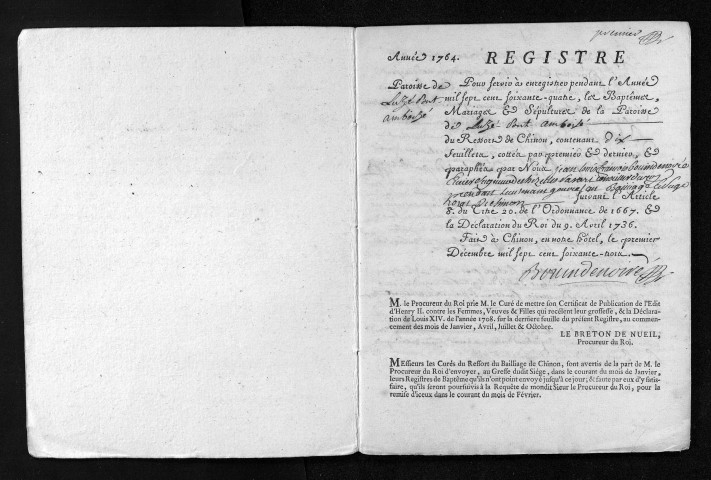 premier
Année 1764. REGISTRE
Paroisse de
Luzé Pont
amboizé
Pour servir à enregistrer pendant l'Année
mil sept cent soixante-quatre, les Baptêmes,
Mariages & Sépultures de la Paroisse
de Luzé Pont amboisé
du Ressort de Chinon, contenant dix
feuillets, cottés par premier & dernier, &
paraphés par Nous jean
suivant l'Article
8. du Titre 20. de l'Ordonnance de 1667. &
la Déclaration du Roi du 9. Avril 1736.
Fait à Chinon, en notre Hôtel, le premier
Décembre mil sept cent soixante-trois
M. le Procureur du Roi prie M. le Curé de mettre son Certificat de Publication de l'Edit
d'Henry II. contre les Femmes, Veuves & Filles qui recélent leur grossesse, & la Déclara-
tion de Louis XIV. de l'année 1708. sur la derniere feuille du présent Registre, au commen-
cement des mois de Janvier, Avril, Juillet & Octobre.
LE BRETON DE NUEIL,
Procureur du Roi.
MEssieurs les Curés du Ressort du Bailliage de Chinon, sont avertis de la part de M. le
Procureur du Roi d'envoyer, au Greffe dudit Siége, dans le courant du mois de Janvier,
leurs Registres de Baptême qu'ils n'ont point envoyé jusqu'à ce jour; & faute par eux d'y satis-
faire, qu'ils seront poursuivis à la Requête de mondit Sieur le Procureur du Roi, pour la
remise d'iceux dans le courant du mois de Février.